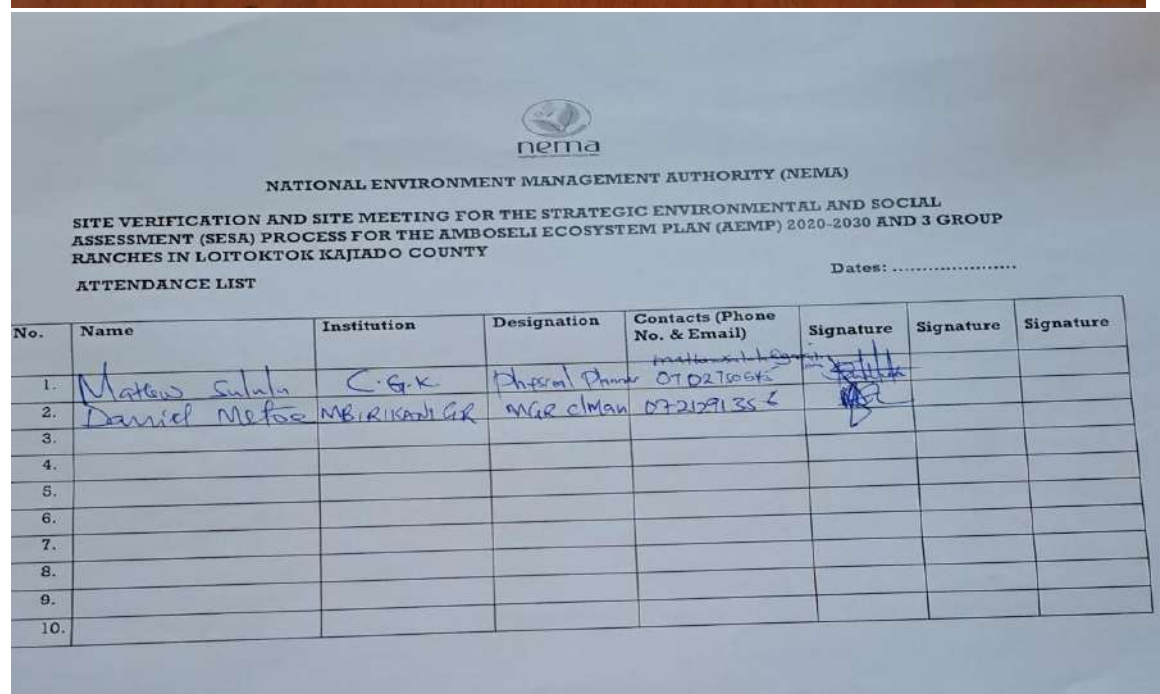 nema
NATIONAL ENVIRONMENT MANAGEMENT AUTHORITY (NEMA)
SITE VERIFICATION AND SITE MEETING FOR THE STRATEGIC ENVIRONMENTAL AND SOCIAL
ASSESSMENT (SESA) PROCESS FOR THE AMBOSELI ECOSYSTEM PLAN (AEMP) 2020-2030 AND 3 GROUP
RANCHES IN LOITOKTOK KAJIADO COUNTY
Dates: .....................
ATTENDANCE LIST
No. Name Institution Designation Contacts (Phone No. & Email) Signature Signature Signature
1. Mathew Sululu C.G.K
2. Daniel MBIRIKANI GR MGR c/man
3.
4.
5.
6.
7.
8.
9.
10.